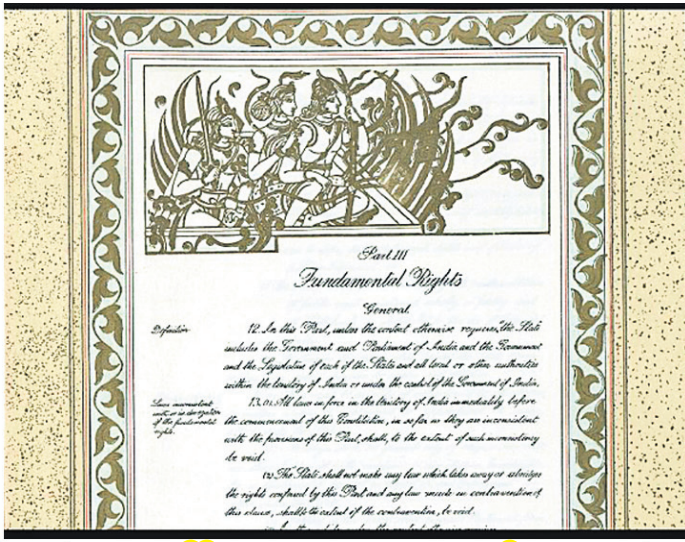 Part III
Fundamental Rights
General.
Definition.
12. In this Part, unless the context otherwise requires, "the State"
includes the Government and Parliament of India and the Government
and the Legislature of each of the States and all local or other authorities
within the territory of India or under the control of the Government of India.
Laws inconsistent
with or in derogation
of the fundamental
rights.
13. (1) All laws in force in the territory of India immediately before
the commencement of this Constitution, in so far as they are inconsistent
with the provisions of this Part, shall, to the extent of such inconsistency,
be void.
(2) The State shall not make any law which takes away or abridges
the rights conferred by this Part and any law made in contravention of
this clause, shall, to the extent of the contravention, be void.